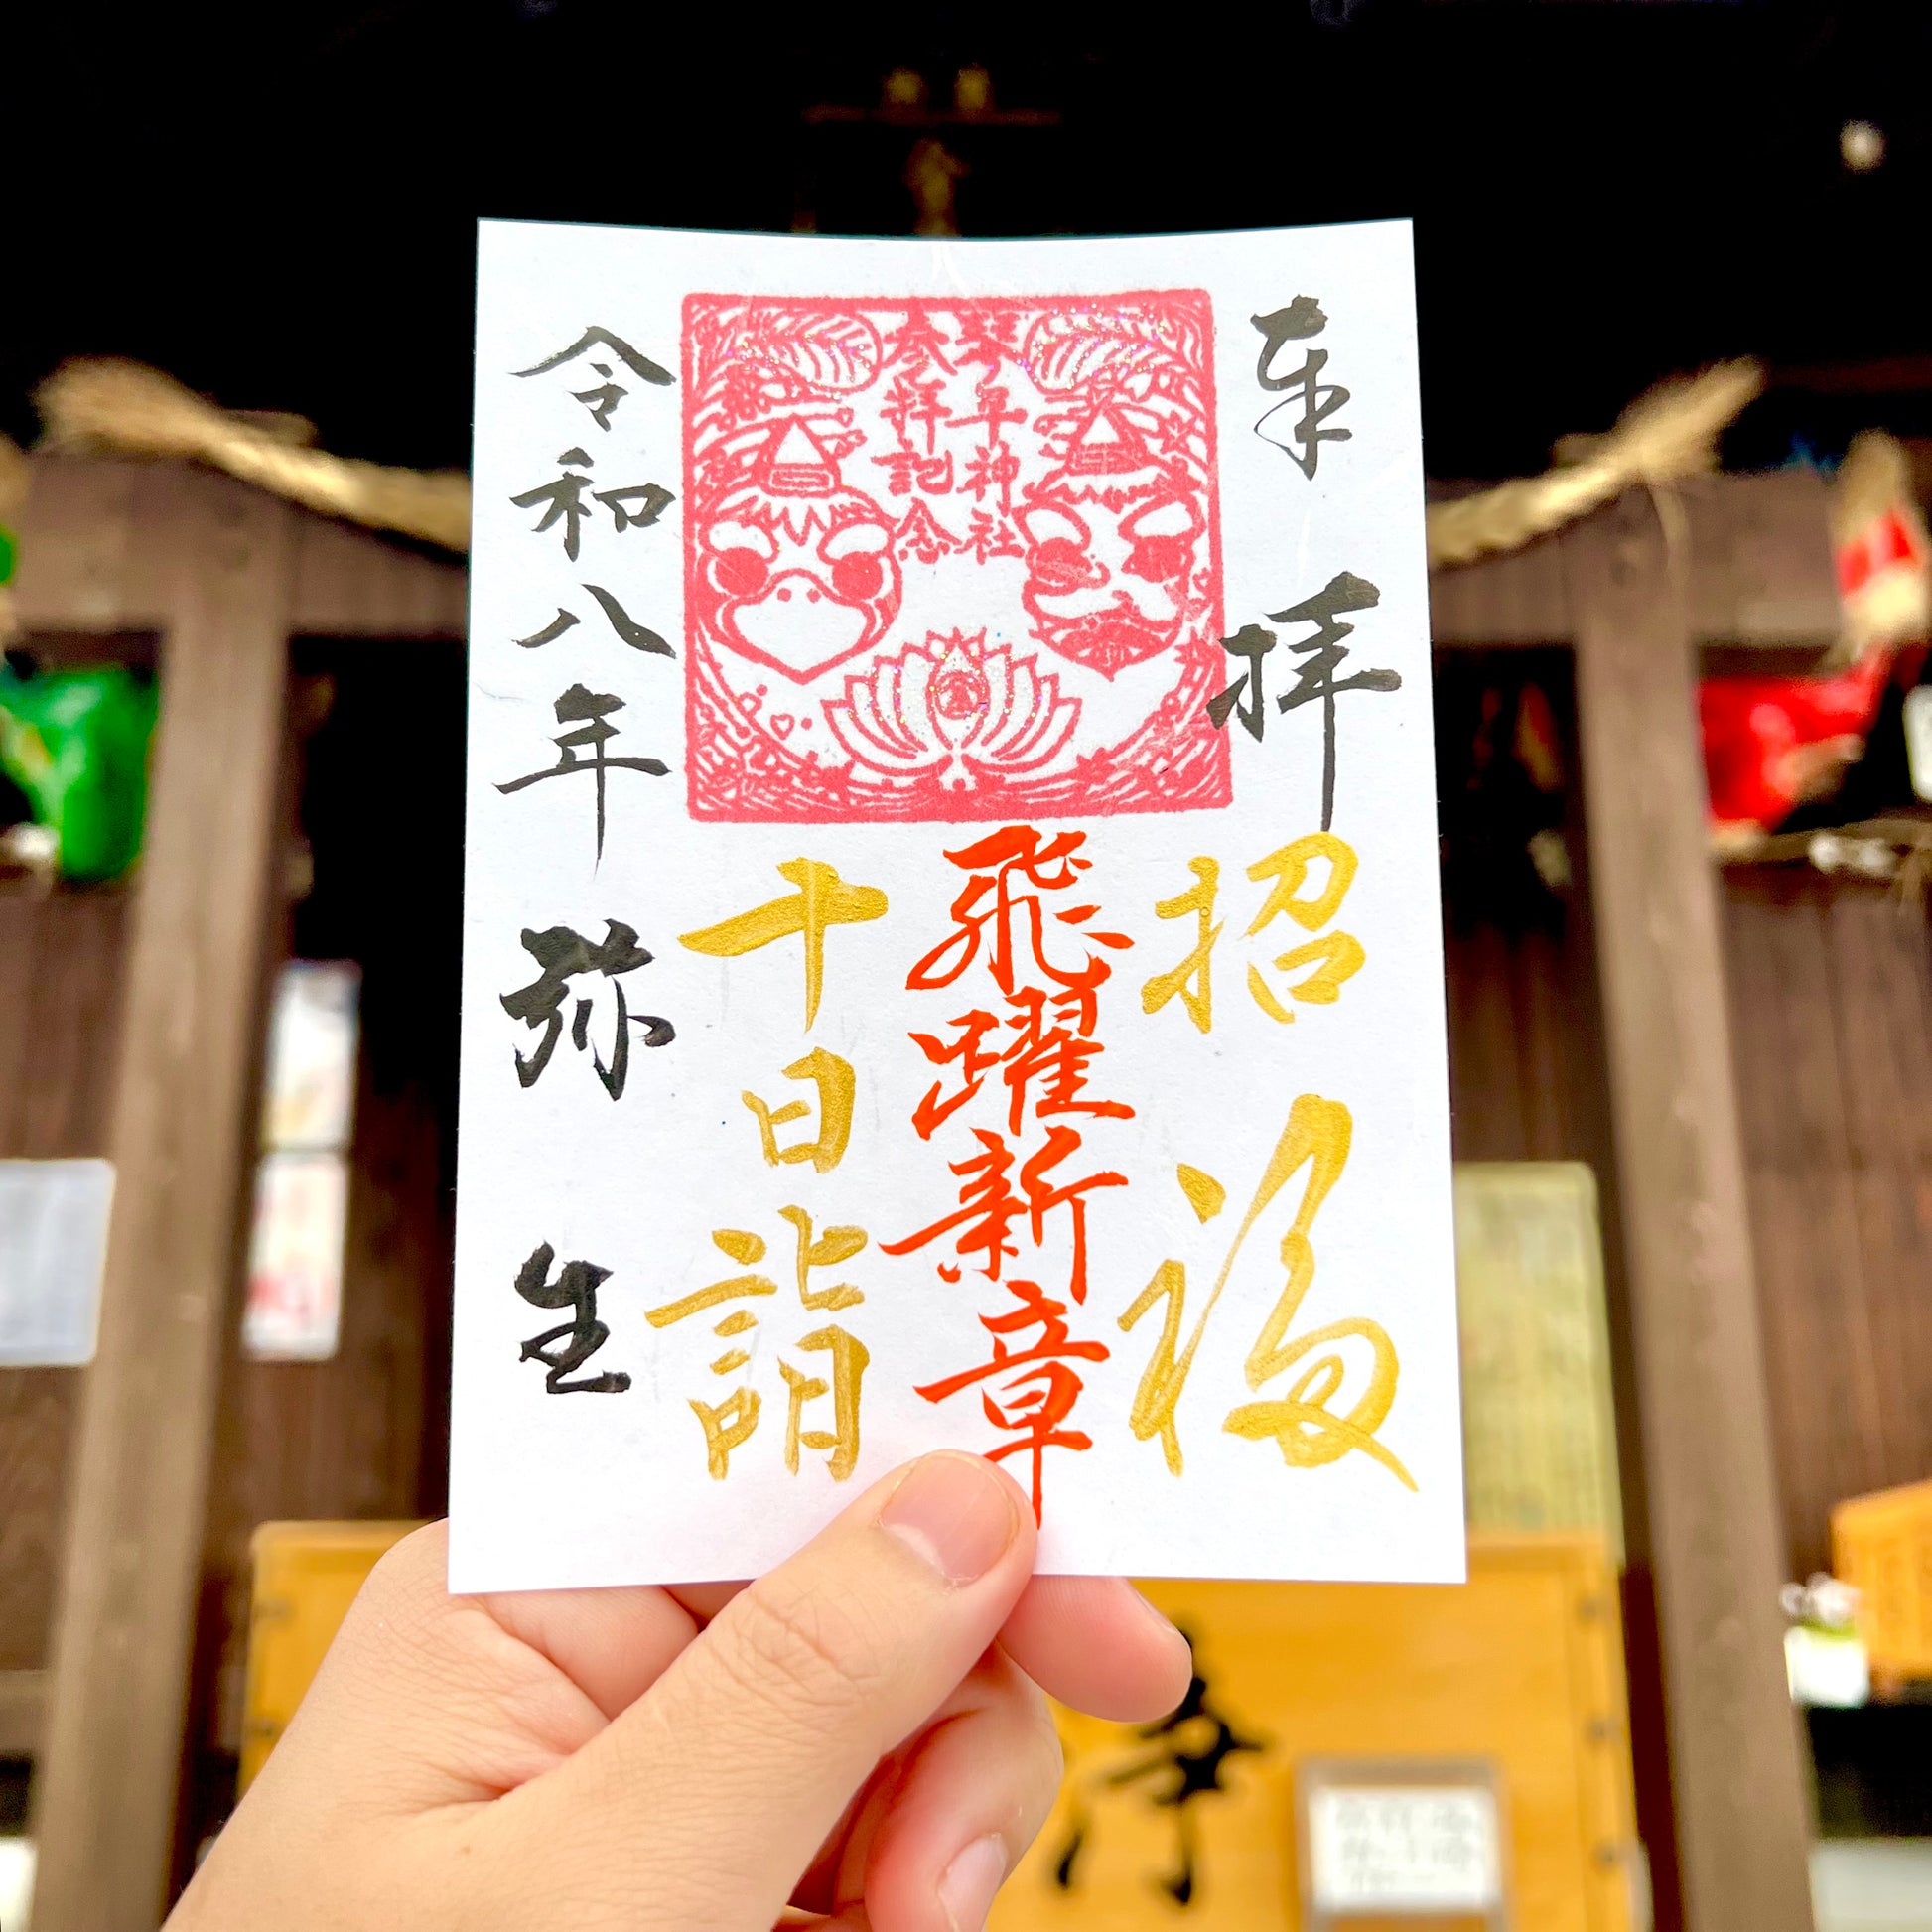 奉拝
招福
琴平神社
参拝記念
飛躍新章
十日詣
令和八年 弥生